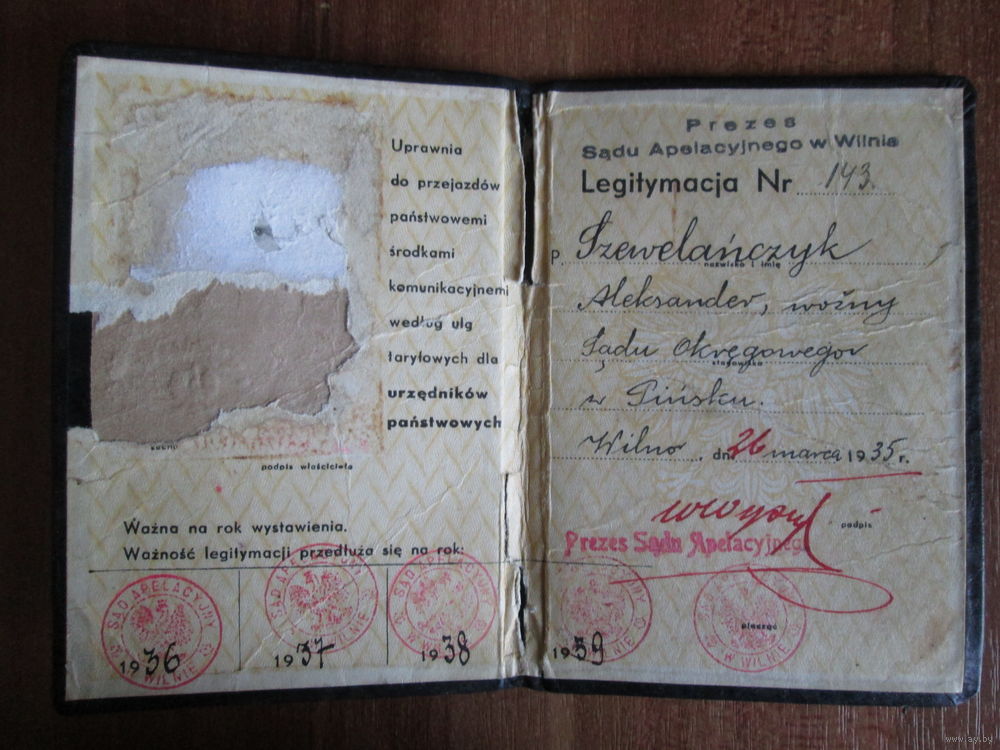 Uprawnia
do przejazdów
państwowemi
środkami
komunikacyjnemi
według ulg
taryfowych dla
urzędników
państwowych
podpis właściciela
Ważna na rok wystawienia.
Ważność legitymacji przedłuża się na rok:
SĄD APELACYJNY W WILNIE
1936
SĄD APELACYJNY W WILNIE
1937
SĄD APELACYJNY W WILNIE
1938
1939
Prezes
Sądu Apelacyjnego w Wilnie
Legitymacja Nr 143.
p. Szewelańczyk
nazwisko i imię
Aleksander, woźny
Sądu Okręgowego
stanowisko
w Pińsku.
Wilno, dn. 26 marca 1935 r.
podpis
Prezes Sądu Apelacyjnego
pieczęć
W WILNIE
www.ay.by